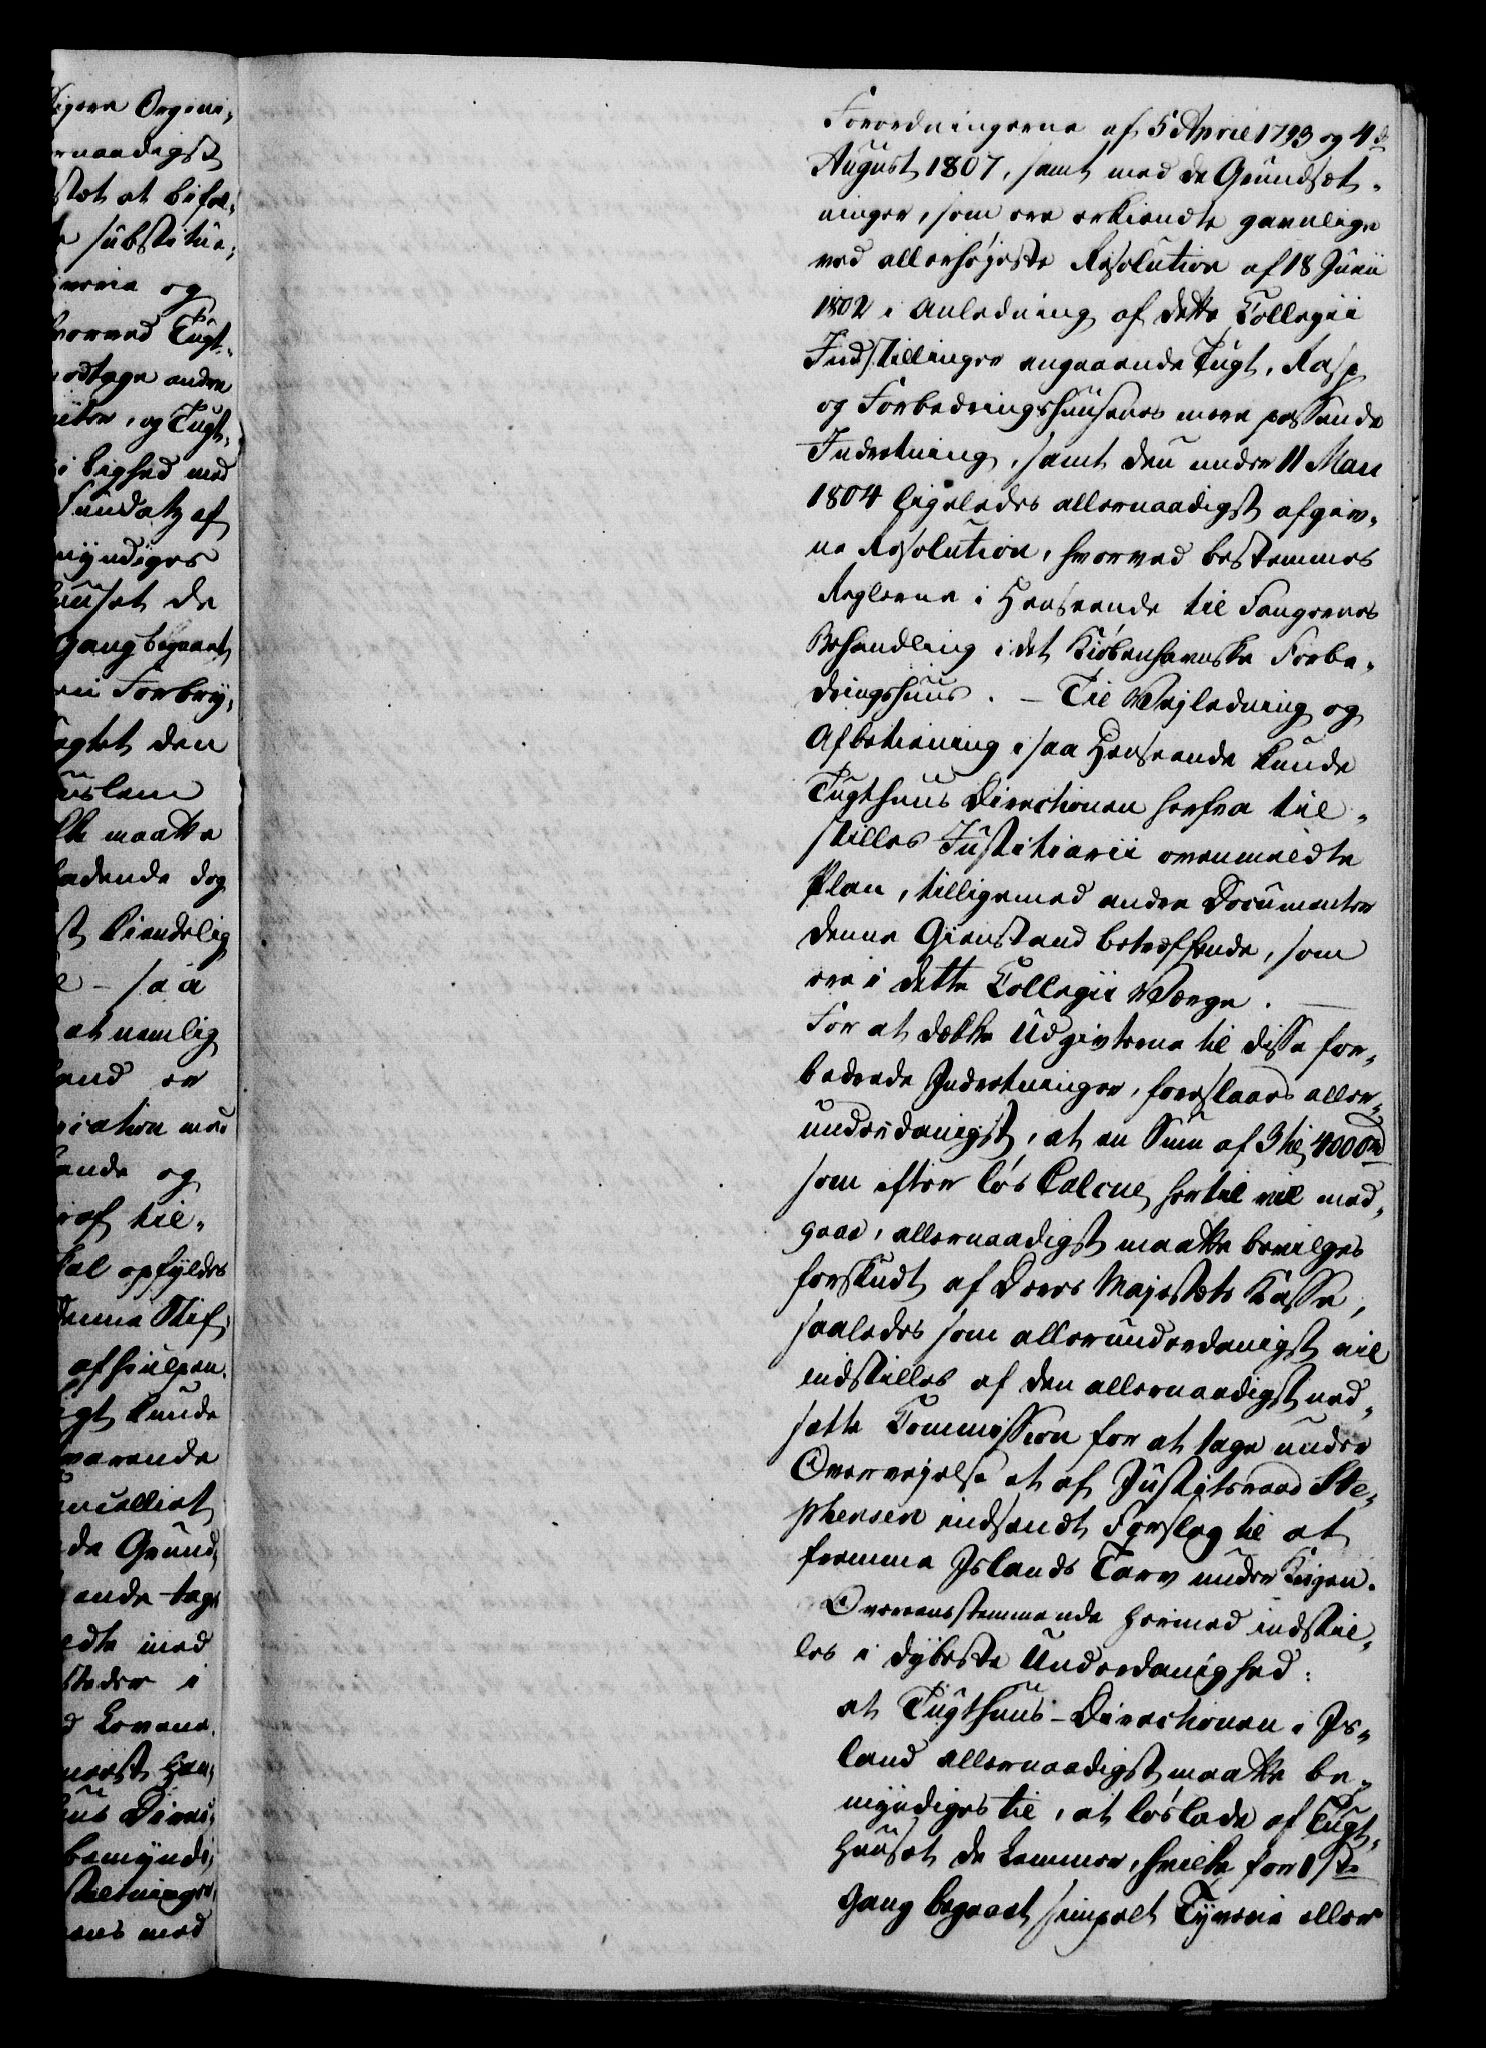 Forordningerne af 5 April 1793 og 4de
August 1807, samt med de Grundsæt-
ninger, som ere erkiendte gavnlige
ved allerhøieste Resolution af 18 Junii
1802 i Anledning af dette Collegii
Indstillinger angaaende Tugt, Rasp
og Forbedringshuusenes mere passende
Indretning, samt den under 11 Maii
1804 ligeledes allernaadigst afgiv-
ne Resolution, hvorved bestemmes
Reglerne i Henseende til Fangernes
Behandling i det Kiøbenhavnske Forbe-
dringshuus. — Til Vejledning og
Afbetiening i saa Henseende kunde
Tugthuus Directionen herfra til-
stilles Justitiarii ovenmeldte
Plan, tilligemed andre Documenter
denne Gienstand betreffende, som
ere i dette Collegii Værge. —
For at dække Udgivterne til disse for-
bedrede Indretninger, foreslaaes aller-
underdanigst, at en Sum af 3 til 4000 rd
som efter løs Calcul hertil vil med-
gaae, allernaadigst maatte bevilges
forskudt af Deres Majestæts Kasse,
saaledes som allerunderdanigst vil
indstilles af den allernaadigst ned-
satte Commission for at tage under
Overvejelse et af Justitsraad Ste-
phensen indsendt Forslag til at
fremme Islands Tarv under Krigen.
Overensstemmende hermed indstil-
les i dybeste Underdanighed:
at Tugthuus-Directionen i Is-
land allernaadigst maatte be-
myndiges til, at løslade af Tugt-
huuset de Lemmer, hvilke for 1ste
Gang begaaet simpelt Tyverie eller